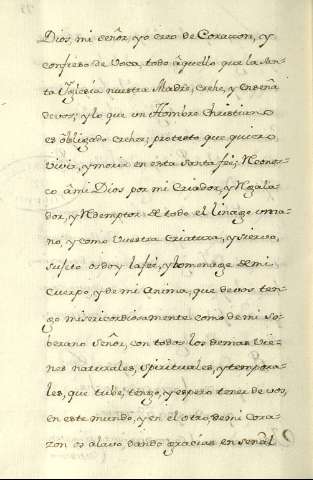 Dios, mi señor, yo creo de Corazon, y
confeso de Voca, todo àquello que la san-
ta Yglesia nuestra Madre, crehe, y enseña
de vos; y lo que un Hombre Christiano
es obligado creher; protesto que quiero
vivir, y morir en esta santa feè; Reconos-
co à mi Dios por mi Criador, y Regala-
dor, y Redemptor de todo el linage uma-
no, y como Vuestra Criatura, y siervo,
sujeto os doy la feè, y homenage de mi
Cuerpo, y de mi Anima, que de vos ten-
go misericordiosamente como de mi so-
berano Señor, con todos los demas Vie-
nes naturales, spirituales, y tempora-
les, que tube, tengo, y espero tener de vos,
en este mundo, y en el otro, de mi Cora-
zon os alavo, dando gracias en señal